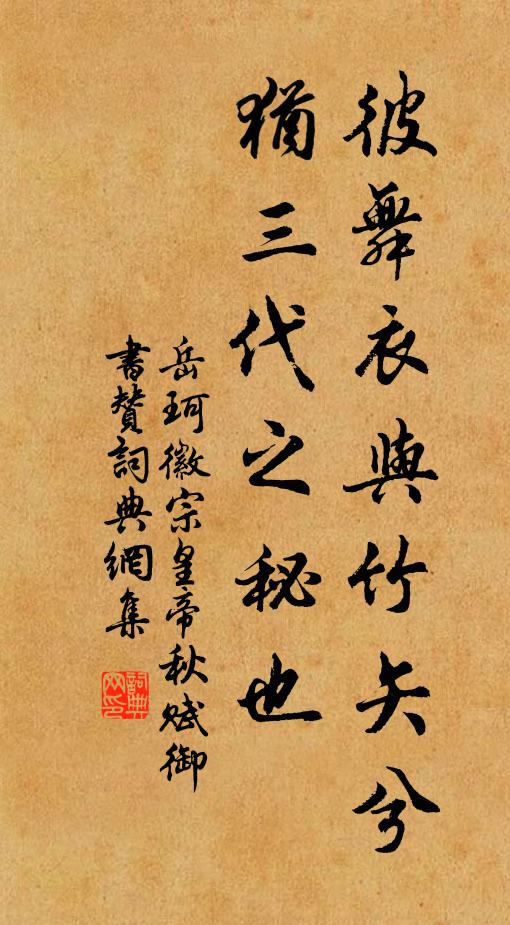 彼舞衣與竹矢兮
猶三代之秘也
岳珂徽宗皇帝秋賦御
書贊詞典網集
詞典
网印